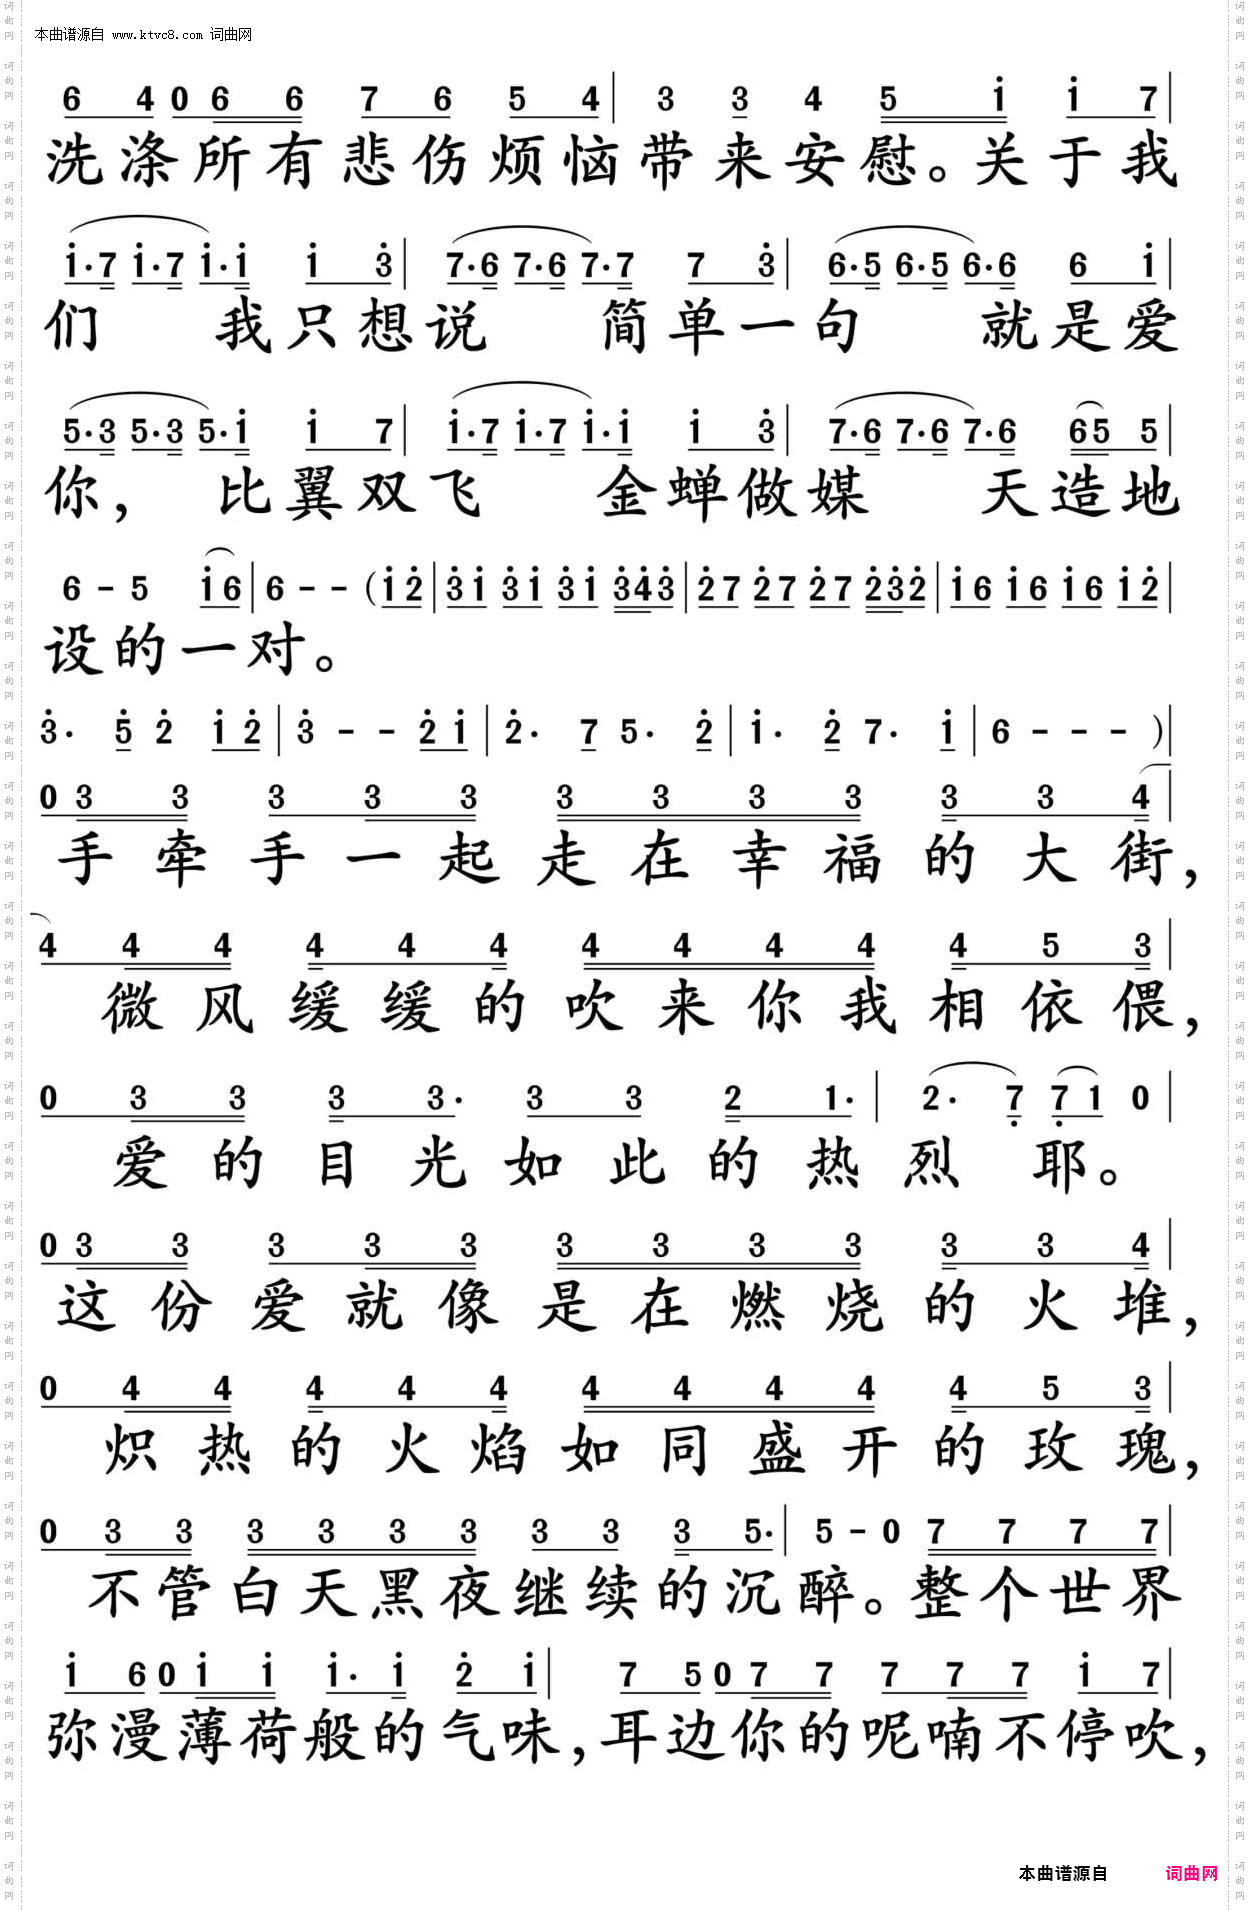 本曲谱源自 www.ktvc8.com 词曲网
6 4 0 6 6 7 6 5 4 | 3 3 4 5 i i 7 |
洗涤所有悲伤烦恼带来安慰。关于我
i·7 i·7 i·i i 3 | 7·6 7·6 7·7 7 3 | 6·5 6·5 6·6 6 i |
们 我只想说 简单一句 就是爱
5·3 5·3 5·i i 7 | i·7 i·7 i·i i 3 | 7·6 7·6 7·6 65 5 |
你，比翼双飞 金蝉做媒 天造地
6 - 5 i6 | 6 - - (i2 | 3i 3i 3i 343 | 27 27 27 232 | i6 i6 i6 i2 |
设的一对。
3· 5 2 i2 | 3 - - 2i | 2· 7 5· 2 | i· 2 7· i | 6 - - - )|
0 3 3 3 3 3 3 3 3 3 3 3 4 |
手牵手一起走在幸福的大街，
4 4 4 4 4 4 4 4 4 4 4 5 3 |
微风缓缓的吹来你我相依偎，
0 3 3 3 3· 3 3 2 1· | 2· 7 7 1 0 |
爱的目光如此的热烈 耶。
0 3 3 3 3 3 3 3 3 3 3 3 4 |
这份爱就像是在燃烧的火堆，
0 4 4 4 4 4 4 4 4 4 4 5 3 |
炽热的火焰如同盛开的玫瑰，
0 3 3 3 3 3 3 3 3 3 5· | 5 - 0 7 7 7 7 |
不管白天黑夜继续的沉醉。整个世界
i 6 0 i i i· i 2 i | 7 5 0 7 7 7 7 7 i 7 |
弥漫薄荷般的气味，耳边你的呢喃不停吹，
本曲谱源自 词曲网